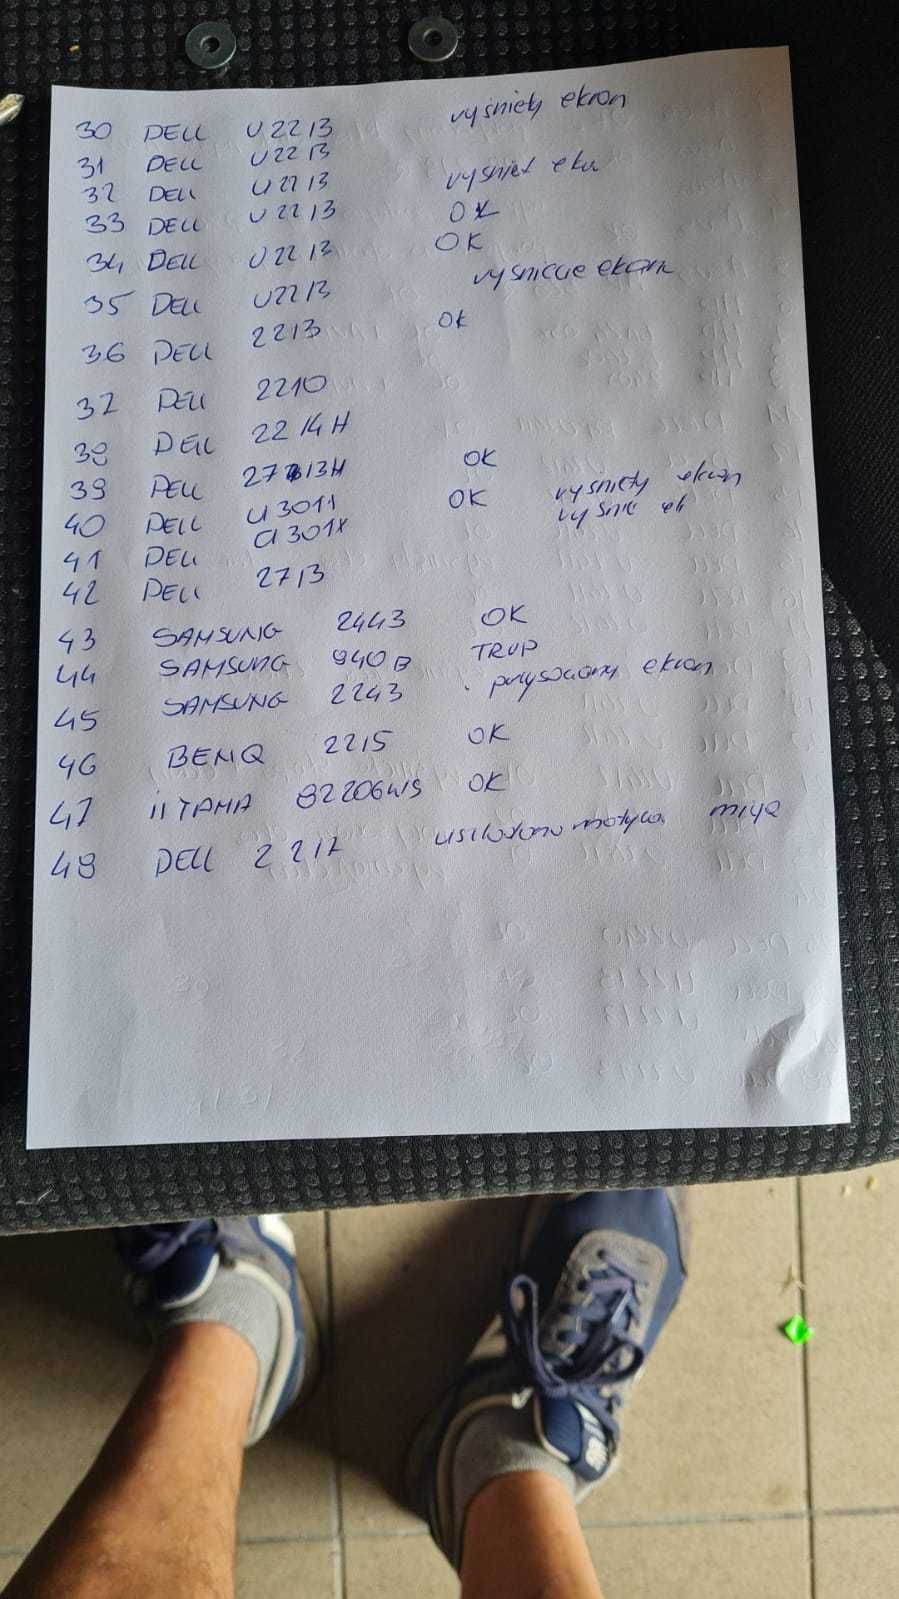 30 DELL U2213 wyśniety ekran
31 DELL U2213
32 DELL U2213 wyśniet ekr
33 DELL U2213 OK
34 DELL U2213 OK
35 DELL U2213 ekran
36 DELL 2213 OK
37 DELL 2210
38 DELL 2214H
39 DELL 2713H OK
40 DELL U3011 OK wyśniety ekran
41 DELL U3011
42 DELL 2713
43 SAMSUNG 2443 OK
44 SAMSUNG 940B TRUP
45 SAMSUNG 2243 porysowany ekran
46 BENQ 2215 OK
47 IIYAMA B2206WS OK
48 DELL 2217 matryca